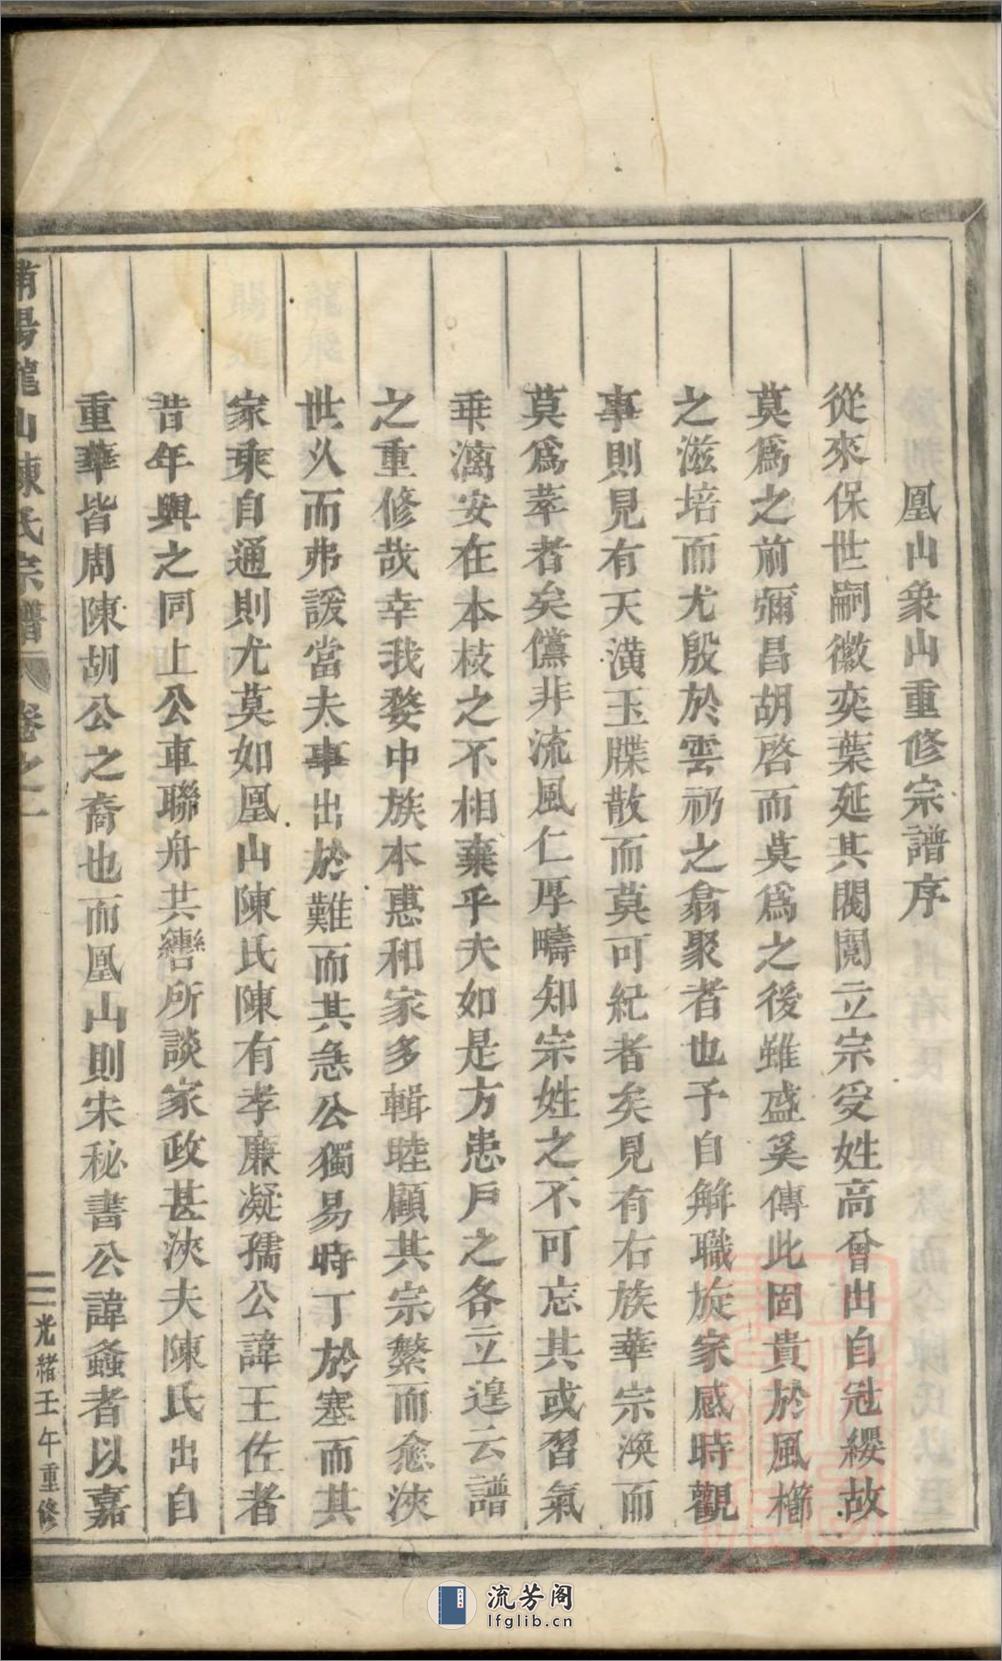 凰山象山重修宗譜序
從來保世嗣徽奕葉延其閥閱立宗受姓高曾出自冠纓故
莫爲之前彌昌胡啓而莫爲之後雖盛奚傳此固貴於風櫛
之滋培而尤殷於雲礽之翕聚者也予自解職旋家感時觀
事則見有天潢玉牒散而莫可紀者矣見有右族華宗渙而
莫爲萃者矣儻非流風仁厚疇知宗姓之不可忘其或習氣
乖漓安在本枝之不相棄乎夫如是方患戶之各立遑云譜
之重修哉幸我婺中族本惪和家多輯睦顧其宗繁而愈浹
世久而弗諼當夫事出於難而其急公獨易時丁於塞而其
家乘自通則尤莫如凰山陳氏陳有孝廉凝孺公諱王佐者
昔年與之同上公車聯舟共轡所談家政甚浹夫陳氏出自
重華皆周陳胡公之裔也而凰山則宋秘書公諱螽者以嘉
陽龍山陳氏宗譜 卷之一
二 光緒壬午重修
流芳阁
lfglib.cn